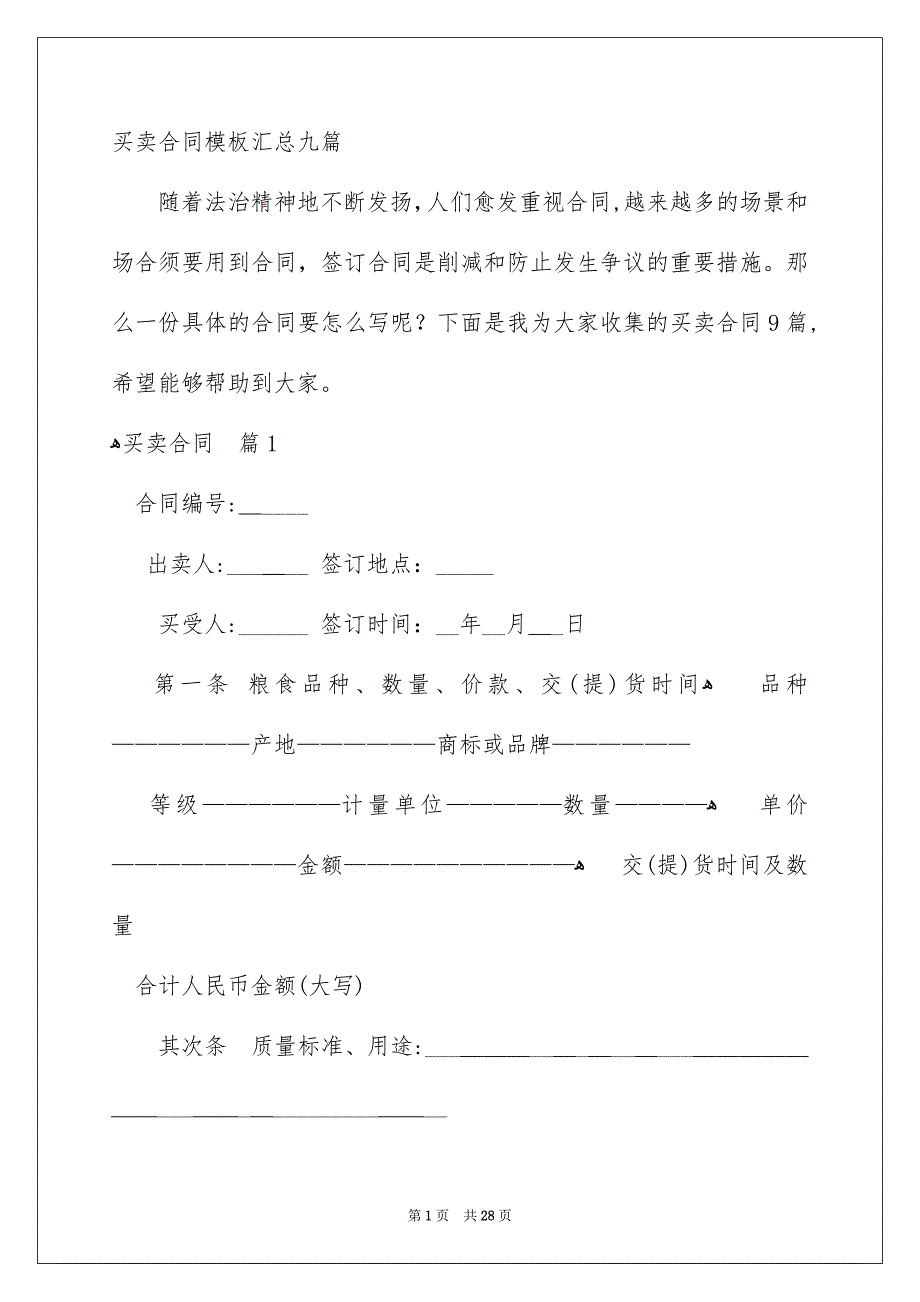 买卖合同模板汇总九篇
随着法治精神地不断发扬，人们愈发重视合同,越来越多的场景和
场合须要用到合同，签订合同是削减和防止发生争议的重要措施。那
么一份具体的合同要怎么写呢？下面是我为大家收集的买卖合同9篇,
希望能够帮助到大家。
ﻫ买卖合同　篇1
合同编号:______
出卖人:_______ 签订地点：_____
买受人:______ 签订时间：__年__月___日
第一条 粮食品种、数量、价款、交(提)货时间ﻫ 品种
——————产地——————商标或品牌——————
等级——————计量单位—————数量————ﻫ 单价
————————金额——————————ﻫ 交(提)货时间及数
量
合计人民币金额(大写)
其次条　质量标准、用途:_________________________________
_____________________________
第1页 共28页